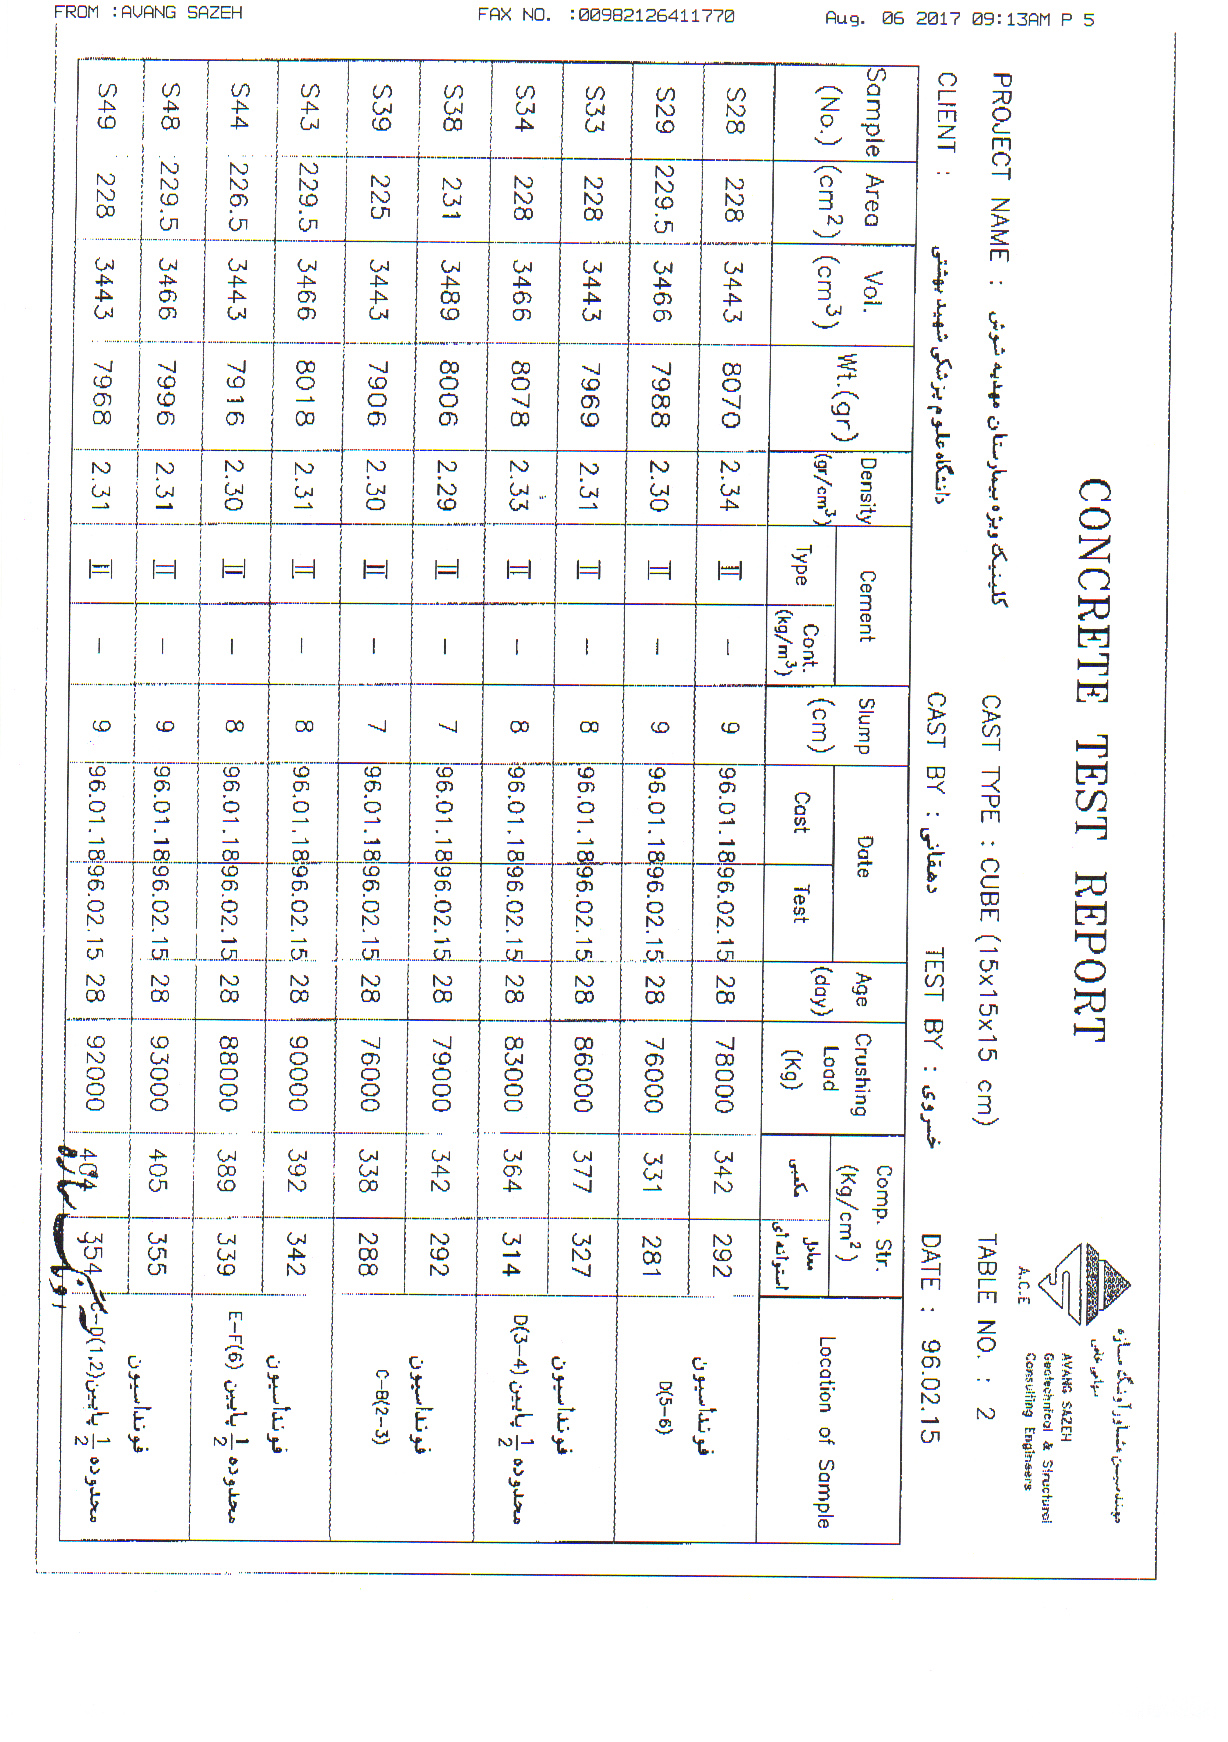 FROM :AVANG SAZEH FAX NO. :00982126411770 Aug. 06 2017 09:13AM P 5
CONCRETE TEST REPORT
مهندسین مشاور آونگ سازه
سهامی خاص
AVANG SAZEH
Geotechnical & Structural
Consulting Engineers
A.C.E
PROJECT NAME : کلینیک ویژه بیمارستان مهدیه شوش CAST TYPE : CUBE (15x15x15 cm) TABLE NO. : 2
CLIENT : دانشگاه علوم پزشکی شهید بهشتی CAST BY : دهقانی TEST BY : خسروی DATE : 96.02.15
Sample (No.) Area (cm2) Vol. (cm3) Wt.(gr) Density (gr/cm3) Cement Type Cont. (kg/m3) Slump (cm) Date Cast Test Age (day) Crushing Load (Kg) Comp. Str. (Kg/cm2) مکعبی معادل استوانه‌ای Location of Sample
S28 228 3443 8070 2.34 II – 9 96.01.18 96.02.15 28 78000 342 292 فونداسیون
S29 229.5 3466 7988 2.30 II – 9 96.01.18 96.02.15 28 76000 331 281 D(5-6)
S33 228 3443 7969 2.31 II – 8 96.01.18 96.02.15 28 86000 377 327 فونداسیون
S34 228 3466 8078 2.33 II – 8 96.01.18 96.02.15 28 83000 364 314 محدوده 1/2 پایین D(3-4)
S38 231 3489 8006 2.29 II – 7 96.01.18 96.02.15 28 79000 342 292 فونداسیون
S39 225 3443 7906 2.30 II – 7 96.01.18 96.02.15 28 76000 338 288 C-B(2-3)
S43 229.5 3466 8018 2.31 II – 8 96.01.18 96.02.15 28 90000 392 342 فونداسیون
S44 226.5 3443 7916 2.30 II – 8 96.01.18 96.02.15 28 88000 389 339 محدوده 1/2 پایین E-F(6)
S48 229.5 3466 7996 2.31 II – 9 96.01.18 96.02.15 28 93000 405 355 فونداسیون
S49 228 3443 7968 2.31 II – 9 96.01.18 96.02.15 28 92000 404 354 محدوده 1/2 پایین C-D(1,2)